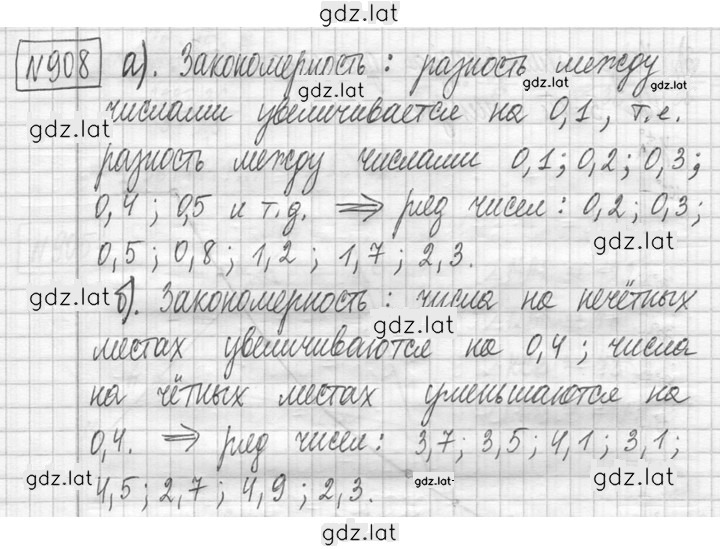 gdz.lat
№908 а). Закономерность: разность между
gdz.lat gdz.lat
числами увеличивается на 0,1, т.е.
gdz.lat
разность между числами 0,1; 0,2; 0,3;
0,4; 0,5 и т.д. ⟹ ряд чисел: 0,2; 0,3;
gdz.lat
0,5; 0,8; 1,2; 1,7; 2,3.
gdz.lat
б). Закономерность: числа на нечётных
gdz.lat
местах увеличиваются на 0,4; числа
на чётных местах уменьшаются на
0,4. ⟹ ряд чисел: 3,7; 3,5; 4,1; 3,1;
gdz.lat gdz.lat gdz.lat
4,5; 2,7; 4,9; 2,3.
gdz.lat